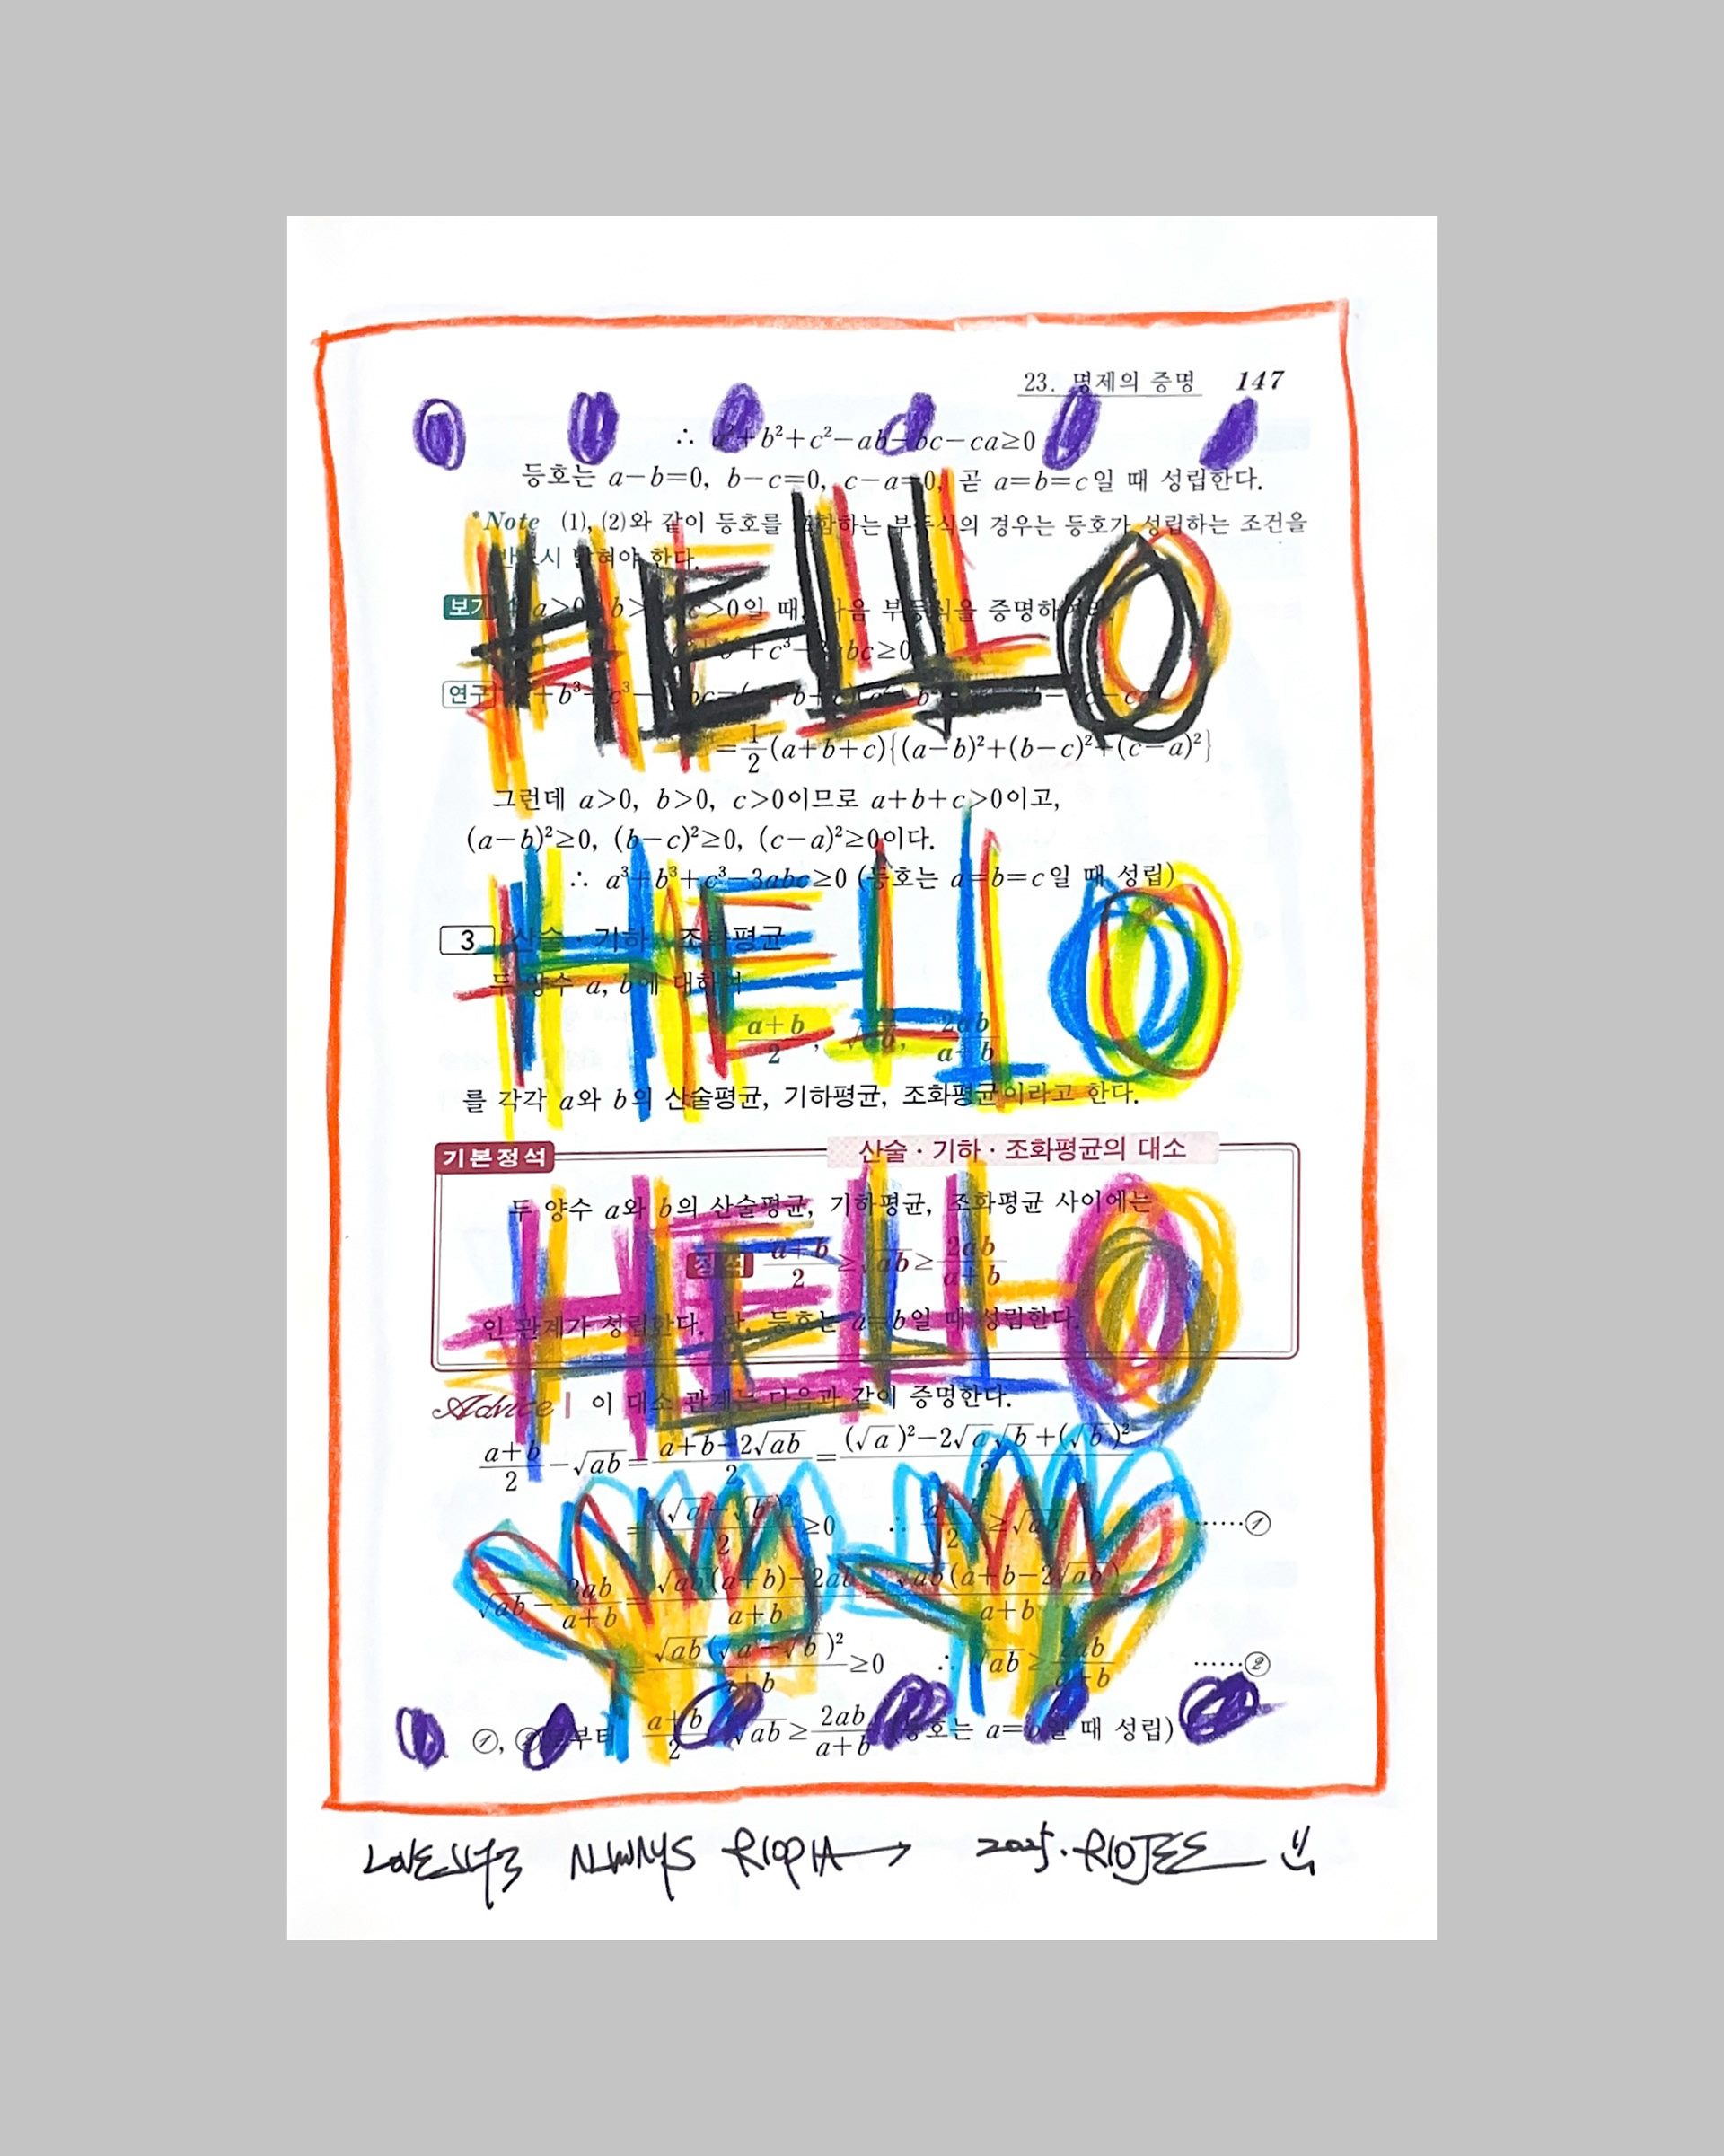 23. 명제의 증명 147
∴ a²+b²+c²−ab−bc−ca≥0
등호는 a−b=0, b−c=0, c−a=0, 곧 a=b=c일 때 성립한다.
*Note (1), (2)와 같이 등호를 포함하는 부등식의 경우는 등호가 성립하는 조건을
반드시 밝혀야 한다.
HELLO
보기 a>0, b>0, c>0일 때, 다음 부등식을 증명하여라.
a³+b³+c³−3abc≥0
연구 a³+b³+c³−3abc=(a+b+c)(a²+b²+c²−ab−bc−ca)
=1/2(a+b+c){(a−b)²+(b−c)²+(c−a)²}
그런데 a>0, b>0, c>0이므로 a+b+c>0이고,
(a−b)²≥0, (b−c)²≥0, (c−a)²≥0이다.
∴ a³+b³+c³−3abc≥0 (등호는 a=b=c일 때 성립)
HELLO
3 산술·기하·조화평균
두 양수 a, b에 대하여
(a+b)/2, √ab, 2ab/(a+b)
를 각각 a와 b의 산술평균, 기하평균, 조화평균이라고 한다.
기본정석 산술·기하·조화평균의 대소
두 양수 a와 b의 산술평균, 기하평균, 조화평균 사이에는
HELLO
정석 (a+b)/2≥√ab≥2ab/(a+b)
인 관계가 성립한다. 단, 등호는 a=b일 때 성립한다.
Advice | 이 대소 관계는 다음과 같이 증명한다.
(a+b)/2−√ab=(a+b−2√ab)/2=((√a)²−2√a√b+(√b)²)/2
=(√a−√b)²/2≥0 ∴ (a+b)/2≥√ab ······①
√ab−2ab/(a+b)=(√ab(a+b)−2ab)/(a+b)=√ab(a+b−2√ab)/(a+b)
=√ab(√a−√b)²/(a+b)≥0 ∴ √ab≥2ab/(a+b) ······②
①, ②로부터 (a+b)/2≥√ab≥2ab/(a+b) (등호는 a=b일 때 성립)
ALWAYS RIOPIA 2025. RIOJEE